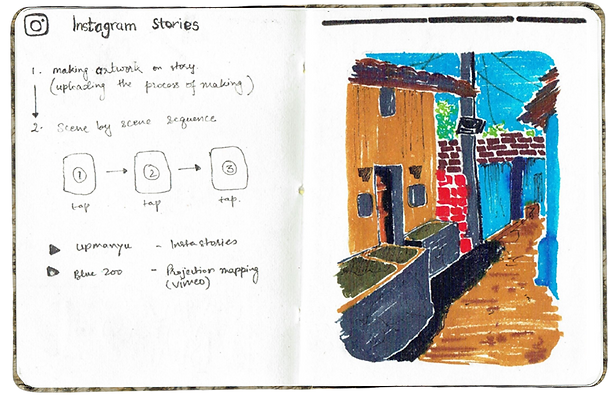 Instagram Stories
1. making artwork on story.
(uploading the process of making)
2. Scene by scene sequence
1 2 3
tap tap tap.
upmanyu - Instastories
Blue Zoo - Projection mapping
(vimeo)